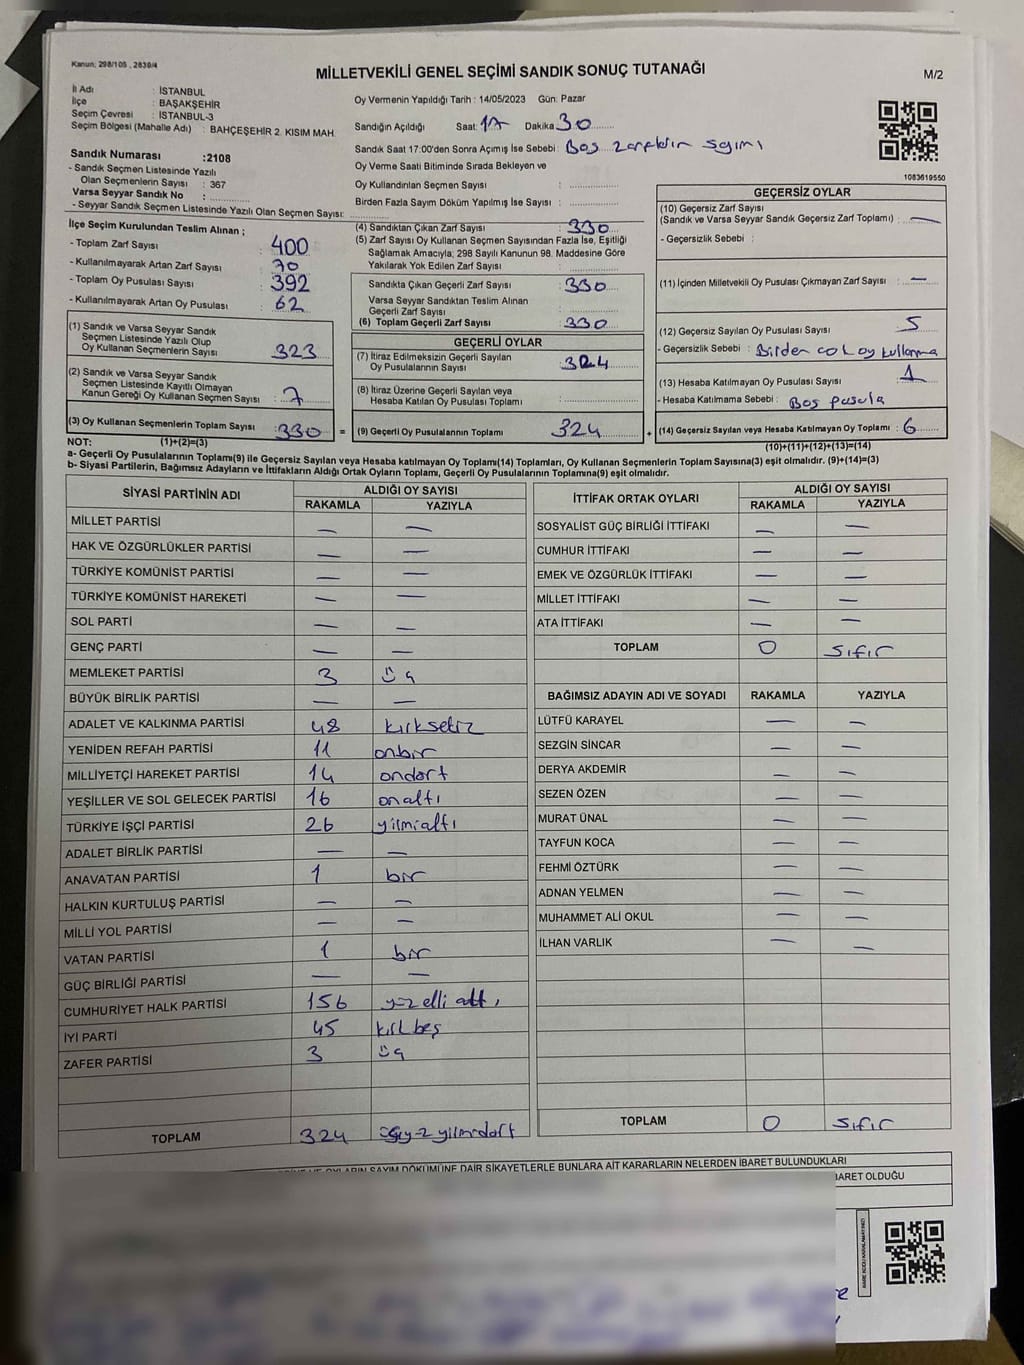 Kanun: 298/105 , 2839/4
MİLLETVEKİLİ GENEL SEÇİMİ SANDIK SONUÇ TUTANAĞI
M/2
İl Adı : İSTANBUL
İlçe : BAŞAKŞEHİR
Seçim Çevresi : İSTANBUL-3
Seçim Bölgesi (Mahalle Adı) : BAHÇEŞEHİR 2. KISIM MAH.
Sandık Numarası :2108
- Sandık Seçmen Listesinde Yazılı
Olan Seçmenlerin Sayısı : 367
Varsa Seyyar Sandık No :
- Seyyar Sandık Seçmen Listesinde Yazılı Olan Seçmen Sayısı:
Oy Vermenin Yapıldığı Tarih : 14/05/2023 Gün: Pazar
Sandığın Açıldığı Saat: Dakika 30
Sandık Saat 17:00'den Sonra Açımış İse Sebebi : Boş zarfların sayımı
Oy Verme Saati Bitiminde Sırada Bekleyen ve
Oy Kullandırılan Seçmen Sayısı :
Birden Fazla Sayım Döküm Yapılmış İse Sayısı :
1083619550
İlçe Seçim Kurulundan Teslim Alınan ;
- Toplam Zarf Sayısı : 400
- Kullanılmayarak Artan Zarf Sayısı : 70
- Toplam Oy Pusulası Sayısı : 392
- Kullanılmayarak Artan Oy Pusulası : 62
(1) Sandık ve Varsa Seyyar Sandık
Seçmen Listesinde Yazılı Olup
Oy Kullanan Seçmenlerin Sayısı : 323
(2) Sandık ve Varsa Seyyar Sandık
Seçmen Listesinde Kayıtlı Olmayan
Kanun Gereği Oy Kullanan Seçmen Sayısı : 7
(3) Oy Kullanan Seçmenlerin Toplam Sayısı : 330 =
(4) Sandıktan Çıkan Zarf Sayısı : 330
(5) Zarf Sayısı Oy Kullanan Seçmen Sayısından Fazla İse, Eşitliği
Sağlamak Amacıyla; 298 Sayılı Kanunun 98. Maddesine Göre
Yakılarak Yok Edilen Zarf Sayısı :
Sandıkta Çıkan Geçerli Zarf Sayısı : 330
Varsa Seyyar Sandıktan Teslim Alınan
Geçerli Zarf Sayısı :
(6) Toplam Geçerli Zarf Sayısı : 330
GEÇERLİ OYLAR
(7) İtiraz Edilmeksizin Geçerli Sayılan
Oy Pusulalarının Sayısı : 324
(8) İtiraz Üzerine Geçerli Sayılan veya
Hesaba Katılan Oy Pusulası Toplamı :
(9) Geçerli Oy Pusulalarının Toplamı : 324 +
GEÇERSİZ OYLAR
(10) Geçersiz Zarf Sayısı
(Sandık ve Varsa Seyyar Sandık Geçersiz Zarf Toplamı) : —
- Geçersizlik Sebebi :
(11) İçinden Milletvekili Oy Pusulası Çıkmayan Zarf Sayısı : —
(12) Geçersiz Sayılan Oy Pusulası Sayısı : 5
- Geçersizlik Sebebi : Birden çok oy kullanma
(13) Hesaba Katılmayan Oy Pusulası Sayısı : 1
- Hesaba Katılmama Sebebi : Boş pusula
(14) Geçersiz Sayılan veya Hesaba Katılmayan Oy Toplamı : 6
NOT: (1)+(2)=(3) (10)+(11)+(12)+(13)=(14)
a- Geçerli Oy Pusulalarının Toplamı(9) ile Geçersiz Sayılan veya Hesaba katılmayan Oy Toplamı(14) Toplamları, Oy Kullanan Seçmenlerin Toplam Sayısına(3) eşit olmalıdır. (9)+(14)=(3)
b- Siyasi Partilerin, Bağımsız Adayların ve İttifakların Aldığı Ortak Oyların Toplamı, Geçerli Oy Pusulalarının Toplamına(9) eşit olmalıdır.
SİYASİ PARTİNİN ADI ALDIĞI OY SAYISI
RAKAMLA YAZIYLA
MİLLET PARTİSİ — —
HAK VE ÖZGÜRLÜKLER PARTİSİ — —
TÜRKİYE KOMÜNİST PARTİSİ — —
TÜRKİYE KOMÜNİST HAREKETİ — —
SOL PARTİ — —
GENÇ PARTİ — —
MEMLEKET PARTİSİ 3 üç
BÜYÜK BİRLİK PARTİSİ — —
ADALET VE KALKINMA PARTİSİ 48 kırksekiz
YENİDEN REFAH PARTİSİ 11 onbir
MİLLİYETÇİ HAREKET PARTİSİ 14 ondört
YEŞİLLER VE SOL GELECEK PARTİSİ 16 onaltı
TÜRKİYE İŞÇİ PARTİSİ 26 yirmialtı
ADALET BİRLİK PARTİSİ — —
ANAVATAN PARTİSİ 1 bir
HALKIN KURTULUŞ PARTİSİ — —
MİLLİ YOL PARTİSİ — —
VATAN PARTİSİ 1 bir
GÜÇ BİRLİĞİ PARTİSİ — —
CUMHURİYET HALK PARTİSİ 156 yüzelli altı
İYİ PARTİ 45 kırkbeş
ZAFER PARTİSİ 3 üç
TOPLAM 324 üçyüz yirmidört
İTTİFAK ORTAK OYLARI ALDIĞI OY SAYISI
RAKAMLA YAZIYLA
SOSYALİST GÜÇ BİRLİĞİ İTTİFAKI — —
CUMHUR İTTİFAKI — —
EMEK VE ÖZGÜRLÜK İTTİFAKI — —
MİLLET İTTİFAKI — —
ATA İTTİFAKI — —
TOPLAM 0 sıfır
BAĞIMSIZ ADAYIN ADI VE SOYADI RAKAMLA YAZIYLA
LÜTFÜ KARAYEL — —
SEZGİN SİNCAR — —
DERYA AKDEMİR — —
SEZEN ÖZEN — —
MURAT ÜNAL — —
TAYFUN KOCA — —
FEHMİ ÖZTÜRK — —
ADNAN YELMEN — —
MUHAMMET ALİ OKUL — —
İLHAN VARLIK — —
TOPLAM 0 sıfır
OYLARIN SAYIM DÖKÜMÜNE DAİR ŞİKAYETLERLE BUNLARA AİT KARARLARIN NELERDEN İBARET BULUNDUKLARI
İBARET OLDUĞU
KARE KODU KARALAMAYINIZ